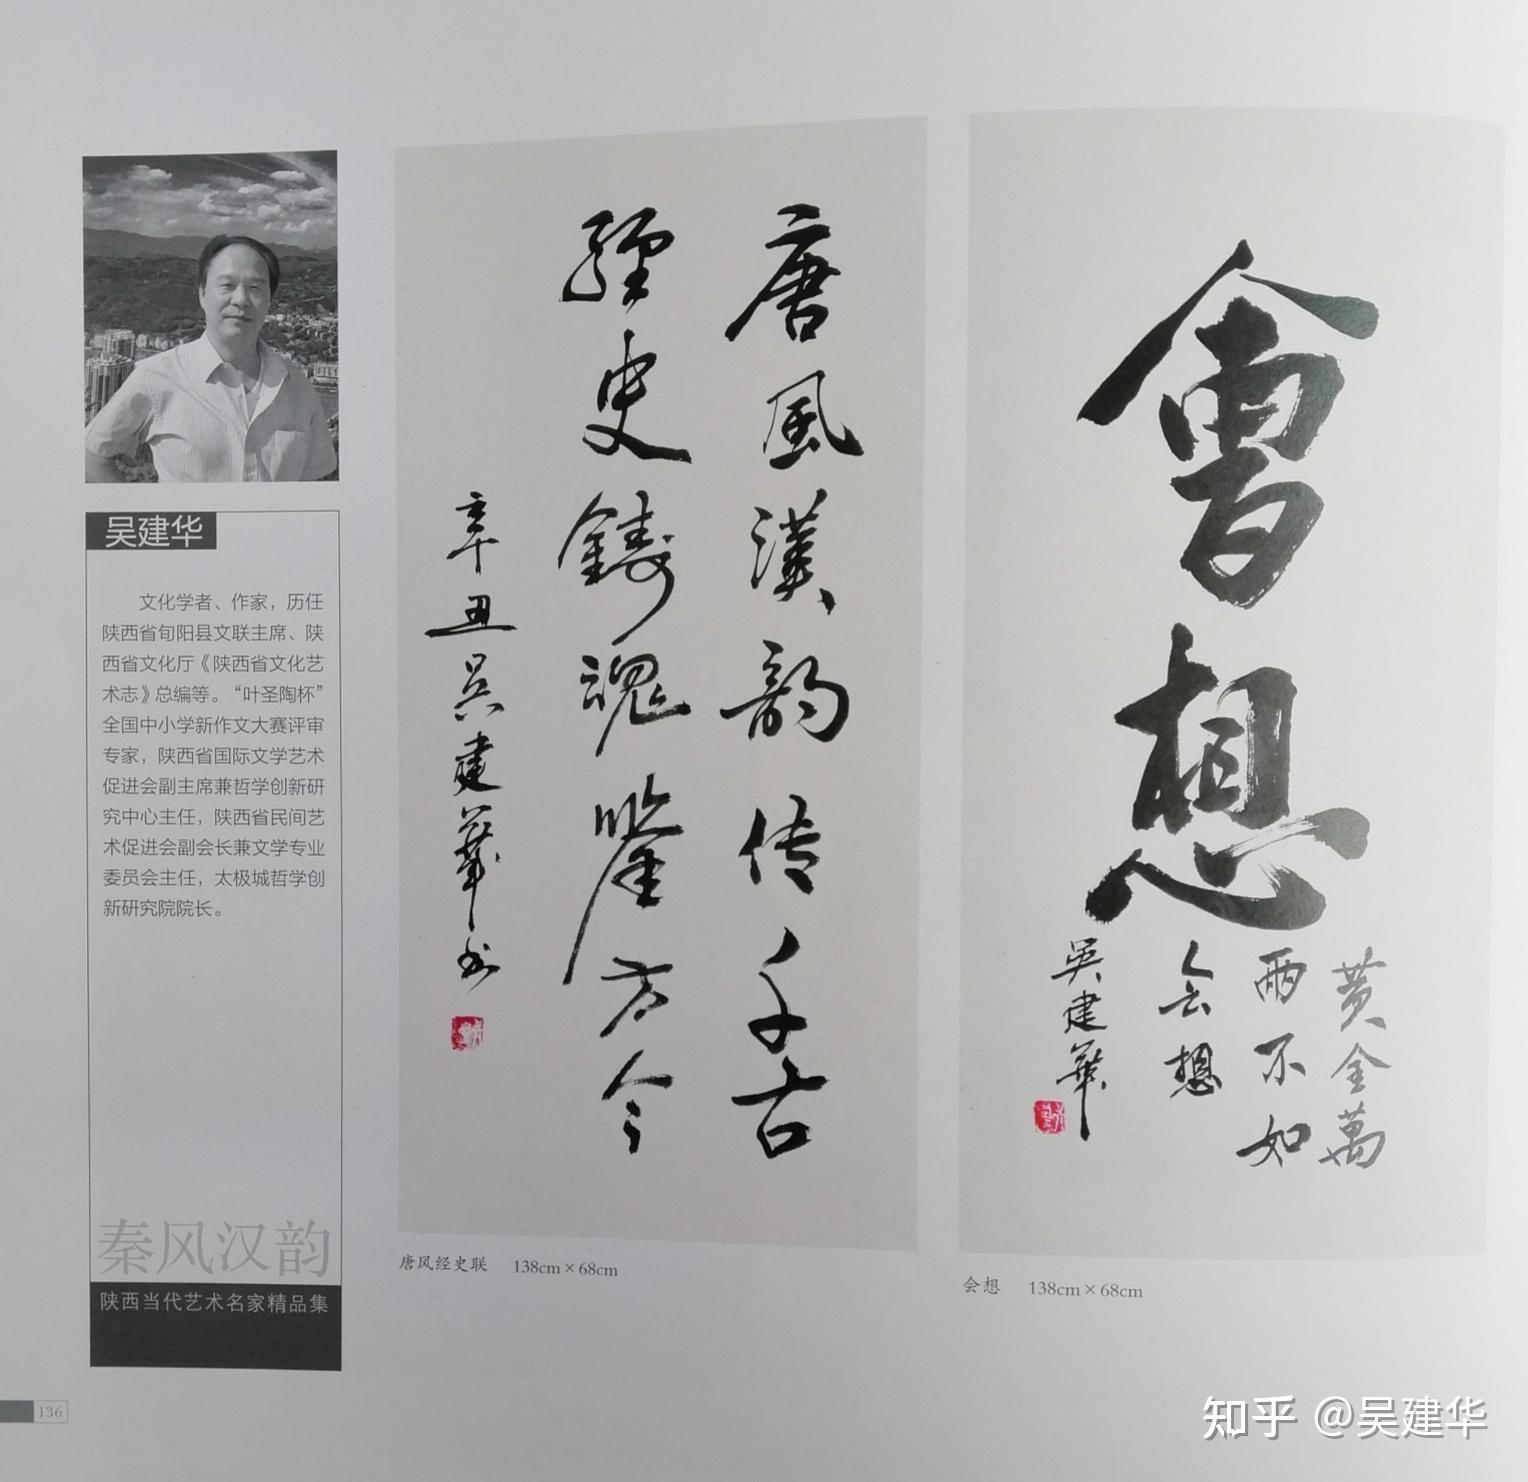 吴建华
文化学者、作家，历任
陕西省旬阳县文联主席、陕
西省文化厅《陕西省文化艺
术志》总编等。“叶圣陶杯”
全国中小学新作文大赛评审
专家，陕西省国际文学艺术
促进会副主席兼哲学创新研
究中心主任，陕西省民间艺
术促进会副会长兼文学专业
委员会主任，太极城哲学创
新研究院院长。
秦风汉韵
陕西当代艺术名家精品集
136
唐風漢韵传千古
經史鑄魂鑒方今
辛丑吴建華书
唐风经史联 138cm×68cm
會想
黄金萬
两不如
会想
吴建華
会想 138cm×68cm
知乎 @吴建华